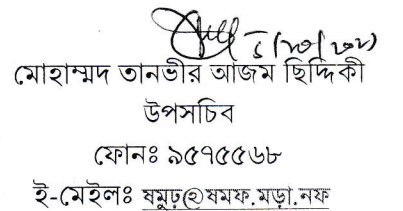 মোহাম্মদ তানভীর আজম ছিদ্দিকী
উপসচিব
ফোনঃ ৯৫৭৫৫৬৮
ই-মেইলঃ ষমুঢ়@ষমফ.মড়া.নফ